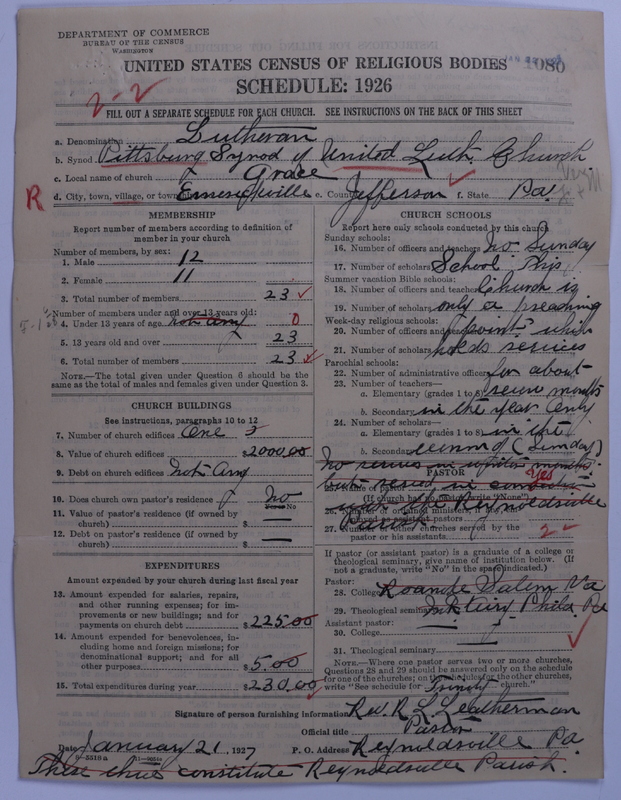 DEPARTMENT OF COMMERCE
BUREAU OF THE CENSUS
WASHINGTON
1080
UNITED STATES CENSUS OF RELIGIOUS BODIES
SCHEDULE: 1926
2-2
FILL OUT A SEPARATE SCHEDULE FOR EACH CHURCH. SEE INSTRUCTIONS ON THE BACK OF THIS SHEET
a. Denomination Lutheran
b. Synod Pittsburg Synod of United Luth. Church
c. Local name of church Grace
R
d. City, town, village, or township Emerickville e. County Jefferson f. State Pa.
MEMBERSHIP
Report number of members according to definition of member in your church
Number of members, by sex:
1. Male 12
2. Female 11
3. Total number of members 23
Number of members under and over 13 years old:
4. Under 13 years of age not any 0
5. 13 years old and over 23
6. Total number of members 23
NOTE.—The total given under Question 6 should be the same as the total of males and females given under Question 3.
CHURCH BUILDINGS
See instructions, paragraphs 10 to 12
7. Number of church edifices One
8. Value of church edifices $2000.00
9. Debt on church edifices not any
10. Does church own pastor's residence? No
Yes or No
11. Value of pastor's residence (if owned by church) $ —
12. Debt on pastor's residence (if owned by church) $ —
EXPENDITURES
Amount expended by your church during last fiscal year
13. Amount expended for salaries, repairs, and other running expenses; for improvements or new buildings; and for payments on church debt $225.00
14. Amount expended for benevolences, including home and foreign missions; for denominational support; and for all other purposes $5.00
15. Total expenditures during year $230.00
CHURCH SCHOOLS
Report here only schools conducted by this church
Sunday schools:
16. Number of officers and teachers No Sunday
17. Number of scholars School. This
Summer vacation Bible schools:
18. Number of officers and teachers Church is
19. Number of scholars only a preaching
Week-day religious schools:
20. Number of officers and teachers point which
21. Number of scholars holds services
Parochial schools:
22. Number of administrative officers for about
23. Number of teachers—
a. Elementary (grades 1 to 8) seven months
b. Secondary in the year only
24. Number of scholars—
a. Elementary (grades 1 to 8) in the
b. Secondary (Sunday)
no services in winter months.
PASTOR
Yes
25.
(If church has no pastor write "None")
Reynoldsville
27. Number of other churches served by the pastor or his assistants 2
If pastor (or assistant pastor) is a graduate of a college or theological seminary, give name of institution below. (If not a graduate, write "No" in the space indicated.)
Pastor:
28. College Roanoke Salem Va
29. Theological seminary Mt Airy Phila. Pa
Assistant pastor:
30. College —
31. Theological seminary —
NOTE.—Where one pastor serves two or more churches, Questions 28 and 29 should be answered only on the schedule for one of the churches; on the schedules for the other churches, write "See schedule for Trinity church."
Signature of person furnishing information Rev. R L Leatherman
Official title Pastor
Date January 21, 1927 P. O. Address Reynoldsville Pa.
9-5518 a
These three constitute Reynoldsville Parish.